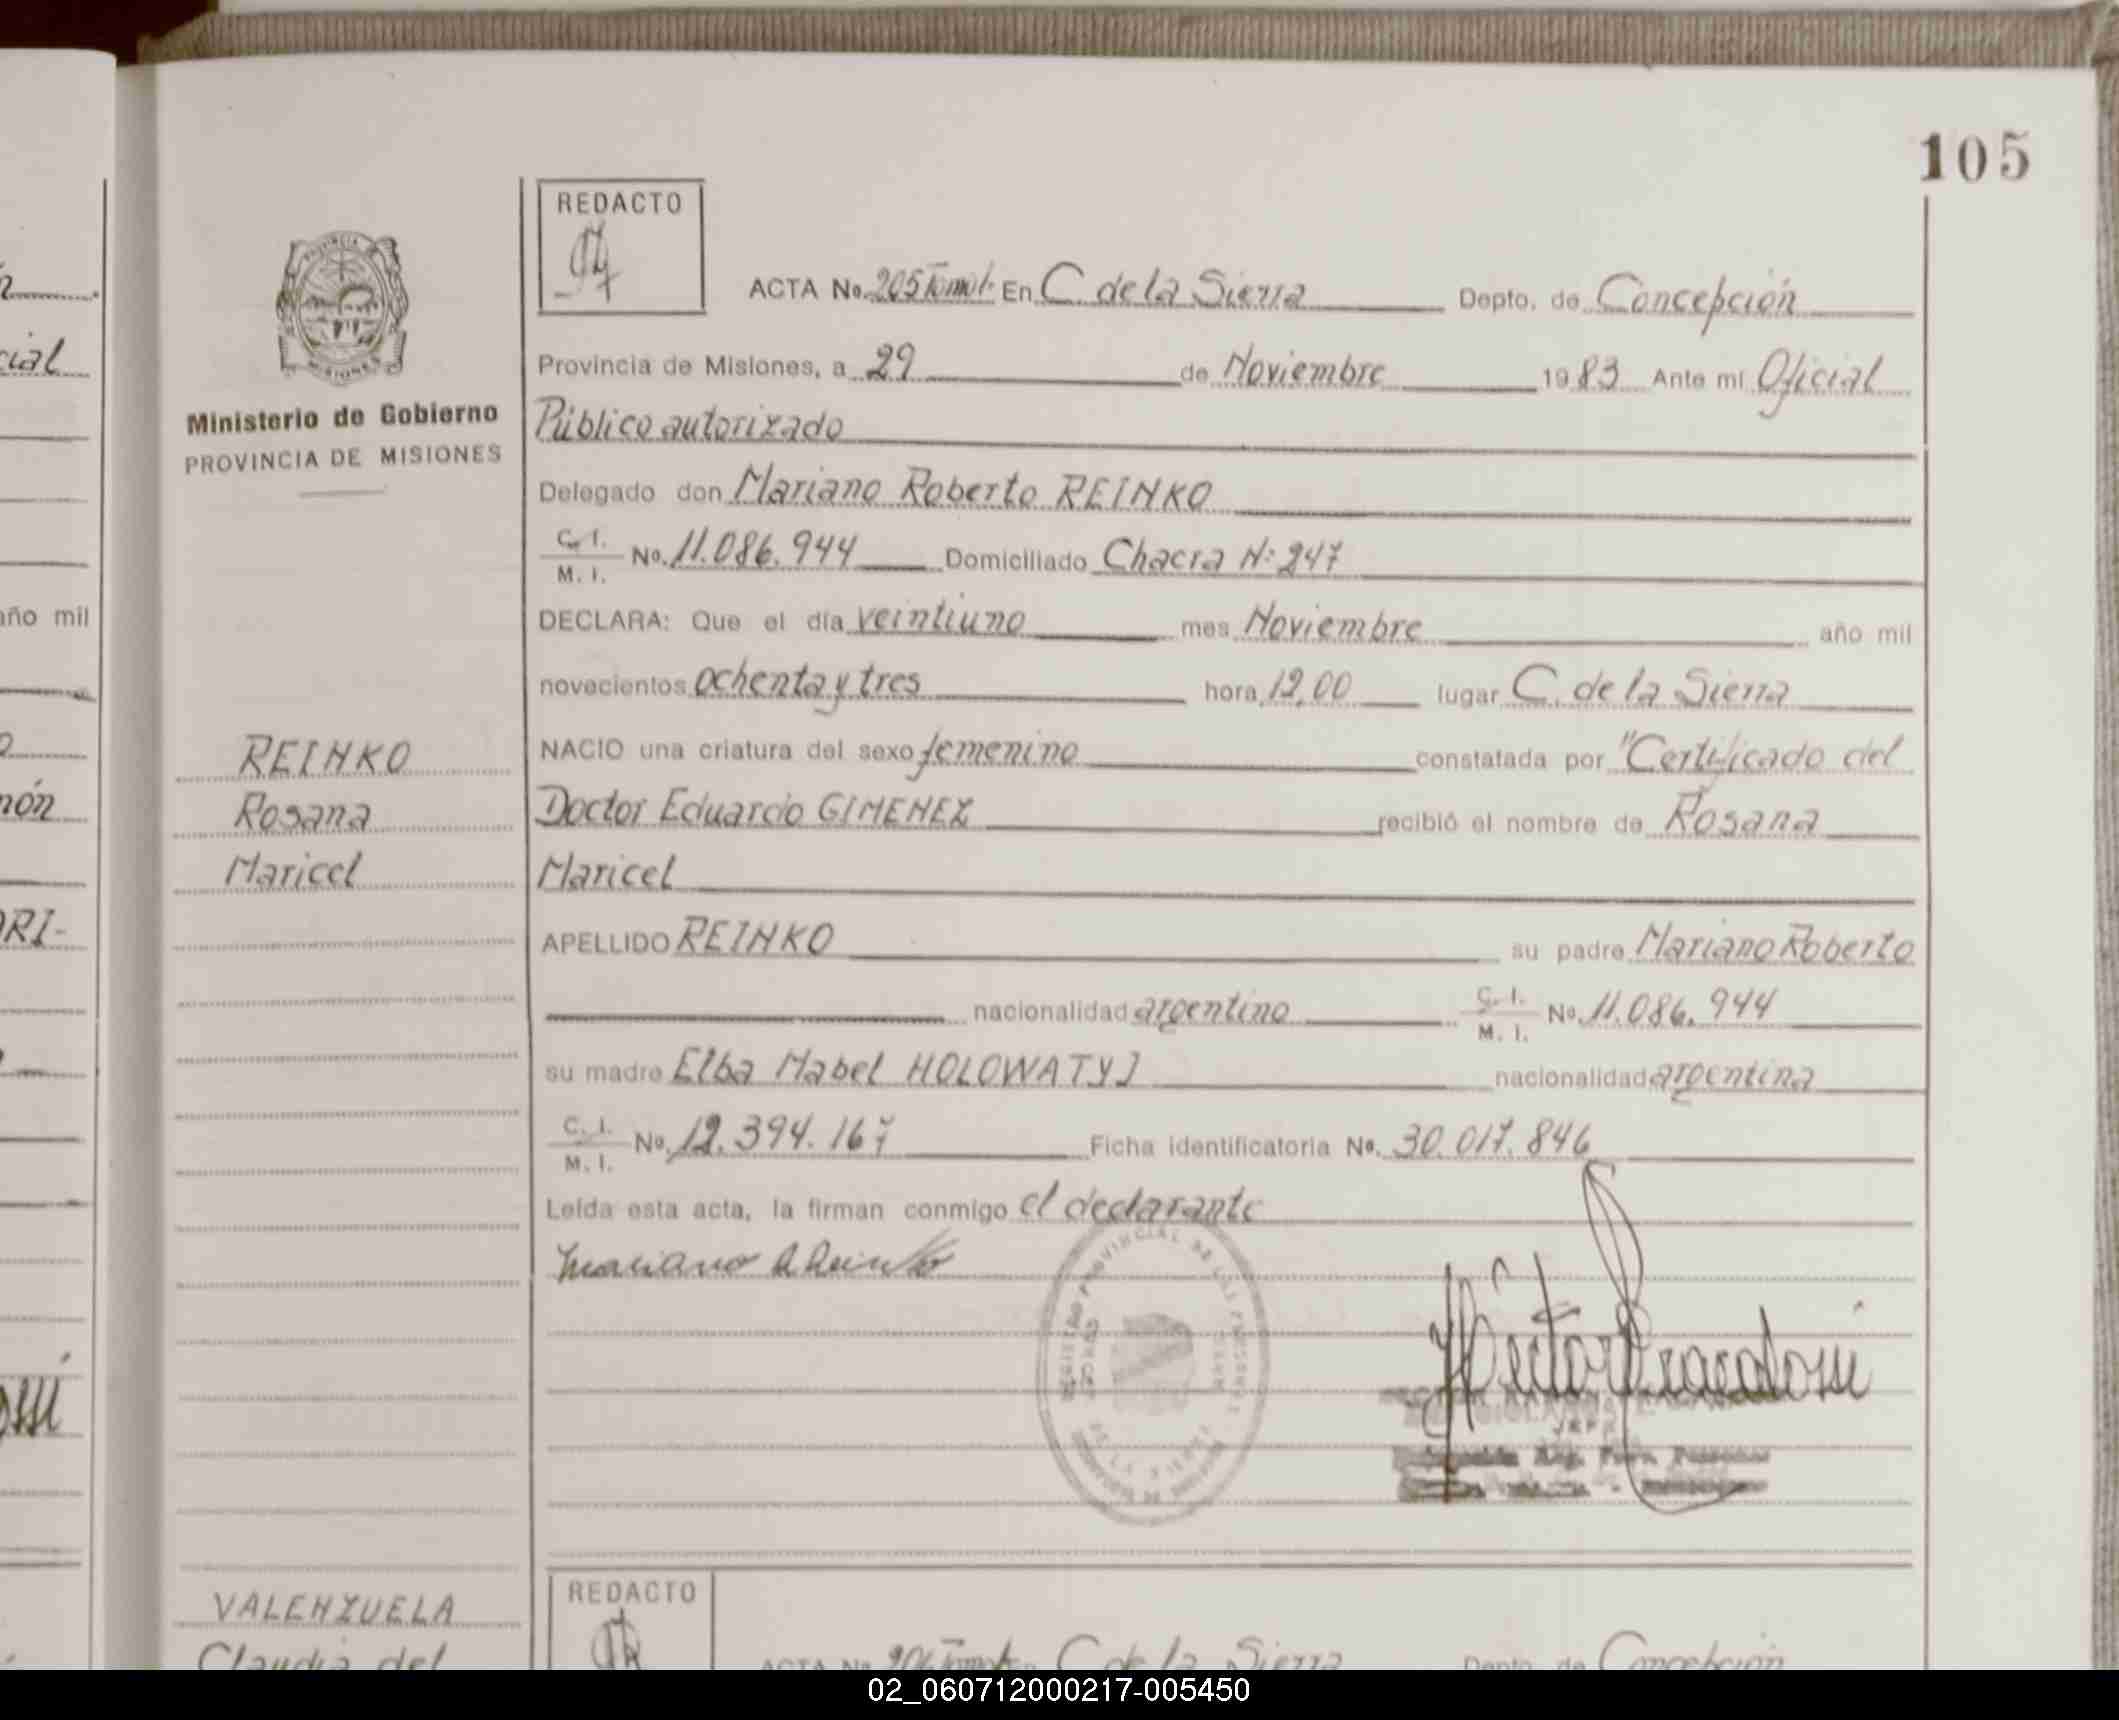 105
REDACTO
PROVINCIA
MISIONES
Ministerio de Gobierno
PROVINCIA DE MISIONES
ACTA No. 205 Tomo I. En C. de la Sierra Depto. de Concepción
cial
Provincia de Misiones, a 29 de Noviembre 1983 Ante mí Oficial
Público autorizado
Delegado don Mariano Roberto REINKO
C. I. M. I. No. 11.086.944 Domiciliado Chacra N: 247
año mil
DECLARA: Que el día veintiuno mes Noviembre año mil
novecientos ochenta y tres hora 12,00 lugar C. de la Sierra
REINKO
NACIO una criatura del sexo femenino constatada por "Certificado del
món
Rosana
Doctor Eduardo GIMENEZ recibió el nombre de Rosana
Maricel
Maricel
ORI-
APELLIDO REINKO su padre Mariano Roberto
nacionalidad argentino C. I. M. I. No. 11.086.944
su madre Elba Mabel HOLOWATYJ nacionalidad argentina
C. I. M. I. No. 12.394.167 Ficha identificatoria No. 30.017.846
Leída esta acta, la firman conmigo el declarante
Mariano R Reinko
REGISTRO PROVINCIAL DE LAS PERSONAS
DE LA SIERRA
Hector
JEFE
VALENZUELA
REDACTO
Claudia del
ACTA No. 206 Tomo I. C. de la Sierra Depto. de Concepción
02_060712000217-005450